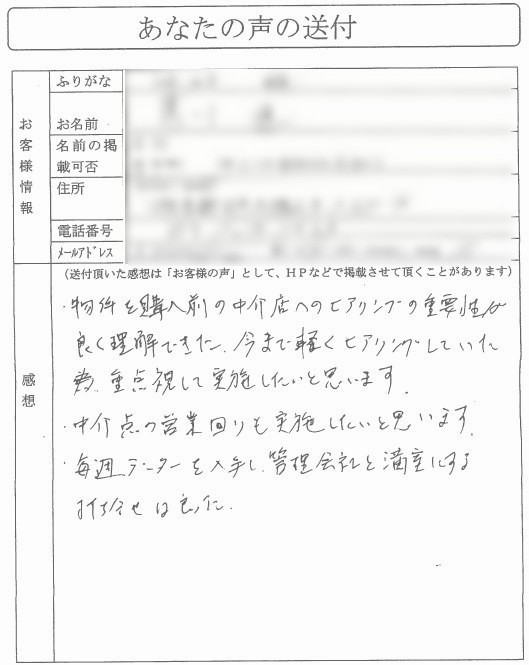 あなたの声の送付
お客様情報
ふりがな
お名前
名前の掲
載可否
住所
電話番号
メールアドレス
(送付頂いた感想は「お客様の声」として、HPなどで掲載させて頂くことがあります)
感想
・物件を購入前の中介店へのヒアリングの重要性が
良く理解できた。今まで軽くヒアリングしていた
為、重点視して実施したいと思います。
・中介点の営業回りも実施したいと思います。
・毎週データーを入手し、管理会社と満室にする
打合せは良った。